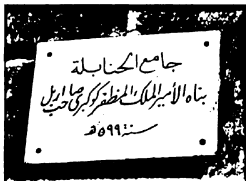 جامع الحنابلة
بناه الأمير الملك المظفر كوكبري صاحب اربل
سنة ٥٩٩ هـ